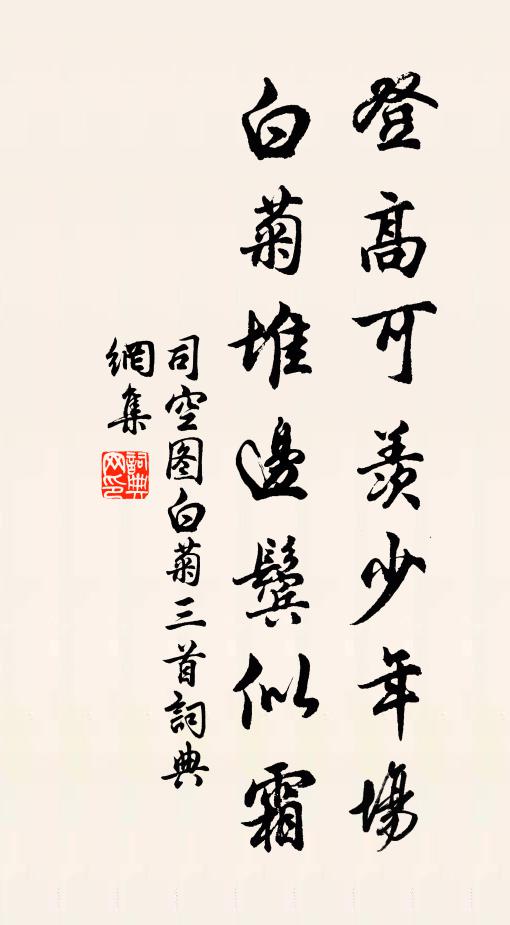 登高可羨少年場
白菊堆邊鬢似霜
司空图白菊三首詞典
網集
詞典
网印